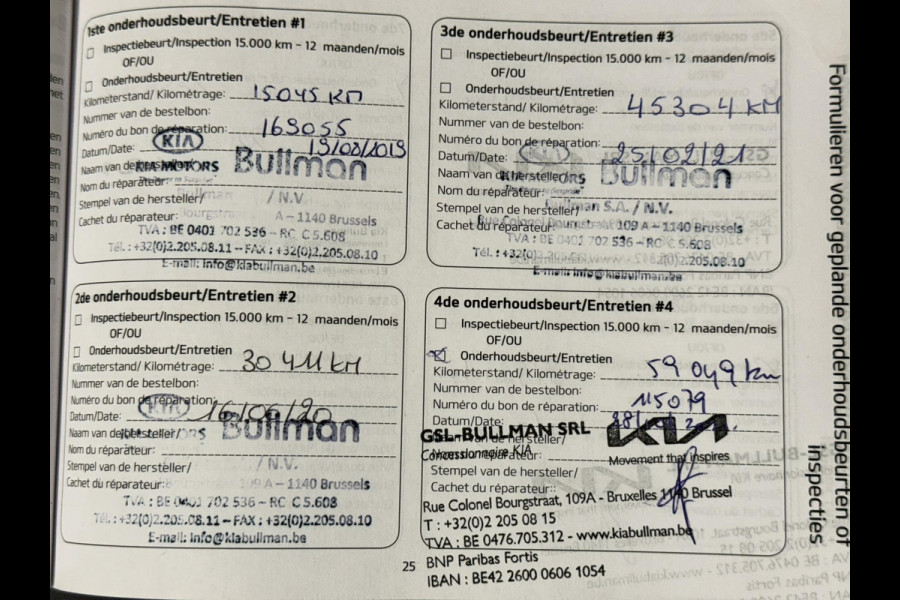 1ste onderhoudsbeurt/Entretien #1
Inspectiebeurt/Inspection 15.000 km - 12 maanden/mois
OF/OU
Onderhoudsbeurt/Entretien
Kilometerstand/ Kilométrage: 15045 KM
Nummer van de bestelbon:
Numéro du bon de réparation: 163055
Datum/Date: 19/08/2019
KIA
Naam van de
KIA MOTORS Bullman
Nom du réparateur:
Stempel van de hersteller/ / N.V.
Cachet du réparateur: A - 1140 Brussels
TVA : BE 0401 702 536 - RC C 5.608
Tél. : +32(0)2.205.08.11 - FAX : +32(0)2.205.08.10
E-mail: info@kiabullman.be
2de onderhoudsbeurt/Entretien #2
Inspectiebeurt/Inspection 15.000 km - 12 maanden/mois
OF/OU
Onderhoudsbeurt/Entretien
Kilometerstand/ Kilométrage: 30411 KM
Nummer van de bestelbon:
Numéro du bon de réparation:
Datum/Date: 16/06/20
KIA
Naam van de hersteller/ Bullman
Nom du réparateur:
Stempel van de hersteller/ / N.V.
Cachet du réparateur: 109 A - 1140 Brussels
TVA : BE 0401 702 536 - RC C 5.608
Tél. : +32(0)2.205.08.11 - FAX : +32(0)2.205.08.10
E-mail: info@kiabullman.be
3de onderhoudsbeurt/Entretien #3
Inspectiebeurt/Inspection 15.000 km - 12 maanden/mois
OF/OU
Onderhoudsbeurt/Entretien
Kilometerstand/ Kilométrage: 45304 KM
Nummer van de bestelbon:
Numéro du bon de réparation:
Datum/Date: 25/02/21
KIA
Naam van de hersteller/ Bullman
Nom du réparateur:
Stempel van de hersteller/ Bullman S.A. / N.V.
Cachet du réparateur: Rue Colonel Bourgstraat 109 A - 1140 Brussels
TVA : BE 0401 702 536 - RC C 5.608
Tél. : +32(0)2. 2.205.08.10
E-mail: info@kiabullman.be
4de onderhoudsbeurt/Entretien #4
Inspectiebeurt/Inspection 15.000 km - 12 maanden/mois
OF/OU
Onderhoudsbeurt/Entretien
Kilometerstand/ Kilométrage: 59049 km
Nummer van de bestelbon:
Numéro du bon de réparation: 115079
Datum/Date:
GSL-BULLMAN SRL KIA
Naam van de hersteller/
Concessionnaire KIA Movement that inspires
Nom du réparateur:
Stempel van de hersteller/
Cachet du réparateur::
Rue Colonel Bourgstraat, 109A - Bruxelles 1140 Brussel
T : +32(0)2 205 08 15
TVA : BE 0476.705.312 - www.kiabullman.be
BNP Paribas Fortis
IBAN : BE42 2600 0606 1054
25
Formulieren voor geplande onderhoudsbeurten of
inspecties